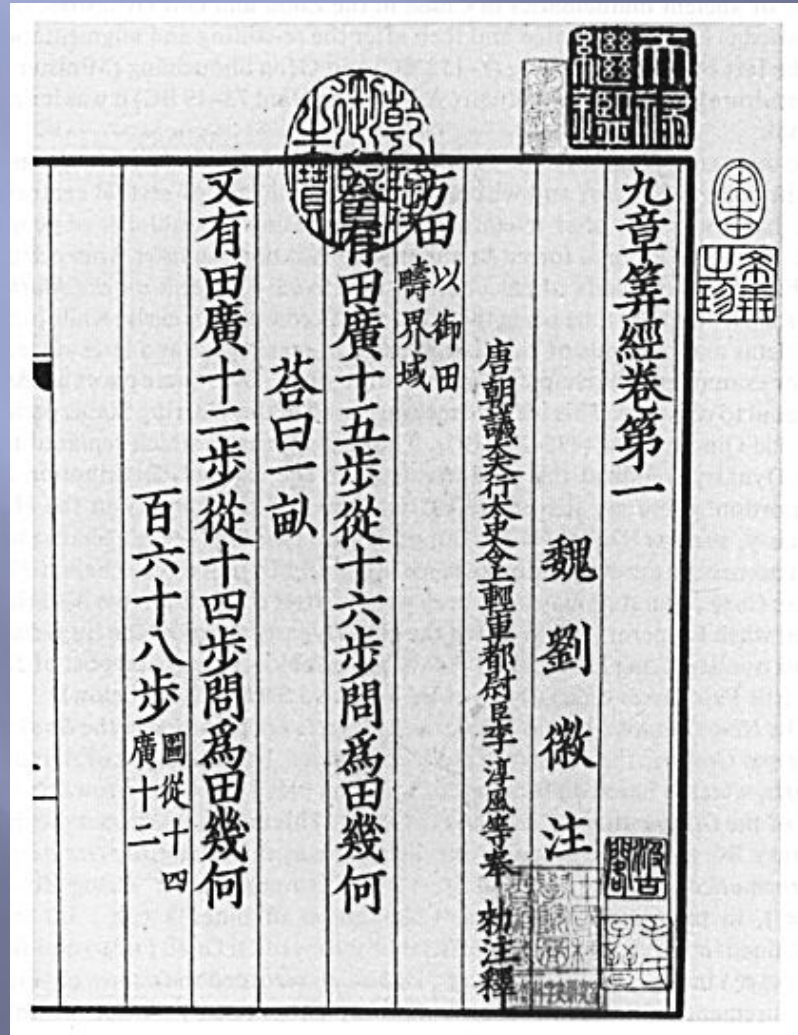 天祿繼鑑
乾隆御覽之寶
九章筭經卷第一
魏劉徽注
唐朝議大夫行太史令上輕車都尉臣李淳風等奉 勑注釋
方田
以御田
疇界域
今有田廣十五步從十六步問爲田幾何
荅曰一畝
又有田廣十二步從十四步問爲田幾何
百六十八步
圖從十四
廣十二